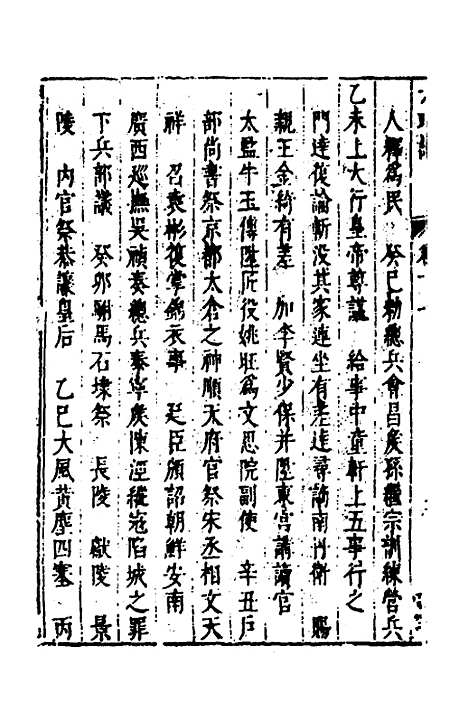 人羈為民　癸巳勑總兵會昌侯孫繼宗訓練營兵
乙未上大行皇帝尊謚　給事中童軒上五事行之
門達復論斬没其家連坐有差達尋謫南丹衛　賜
親王金鈔有差　加李賢少保并陞東宮講讀官
太監牛玉傳陞匠役姚旺為文思院副使　辛丑戶
部尚書祭京都太倉之神順天府官祭宋丞相文天
祥　召袁彬復掌錦衣事　廷臣頒詔朝鮮安南
廣西巡撫吳禎奏總兵泰寧侯陳涇縱寇陷城之罪
下兵部議　癸卯駙馬石璟祭　長陵　獻陵　景
陵　內官祭恭讓皇后　乙巳大風黃塵四塞　丙